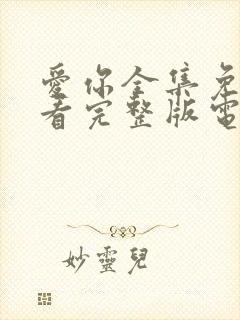 愛你全集免
看完整版電
妙靈兒